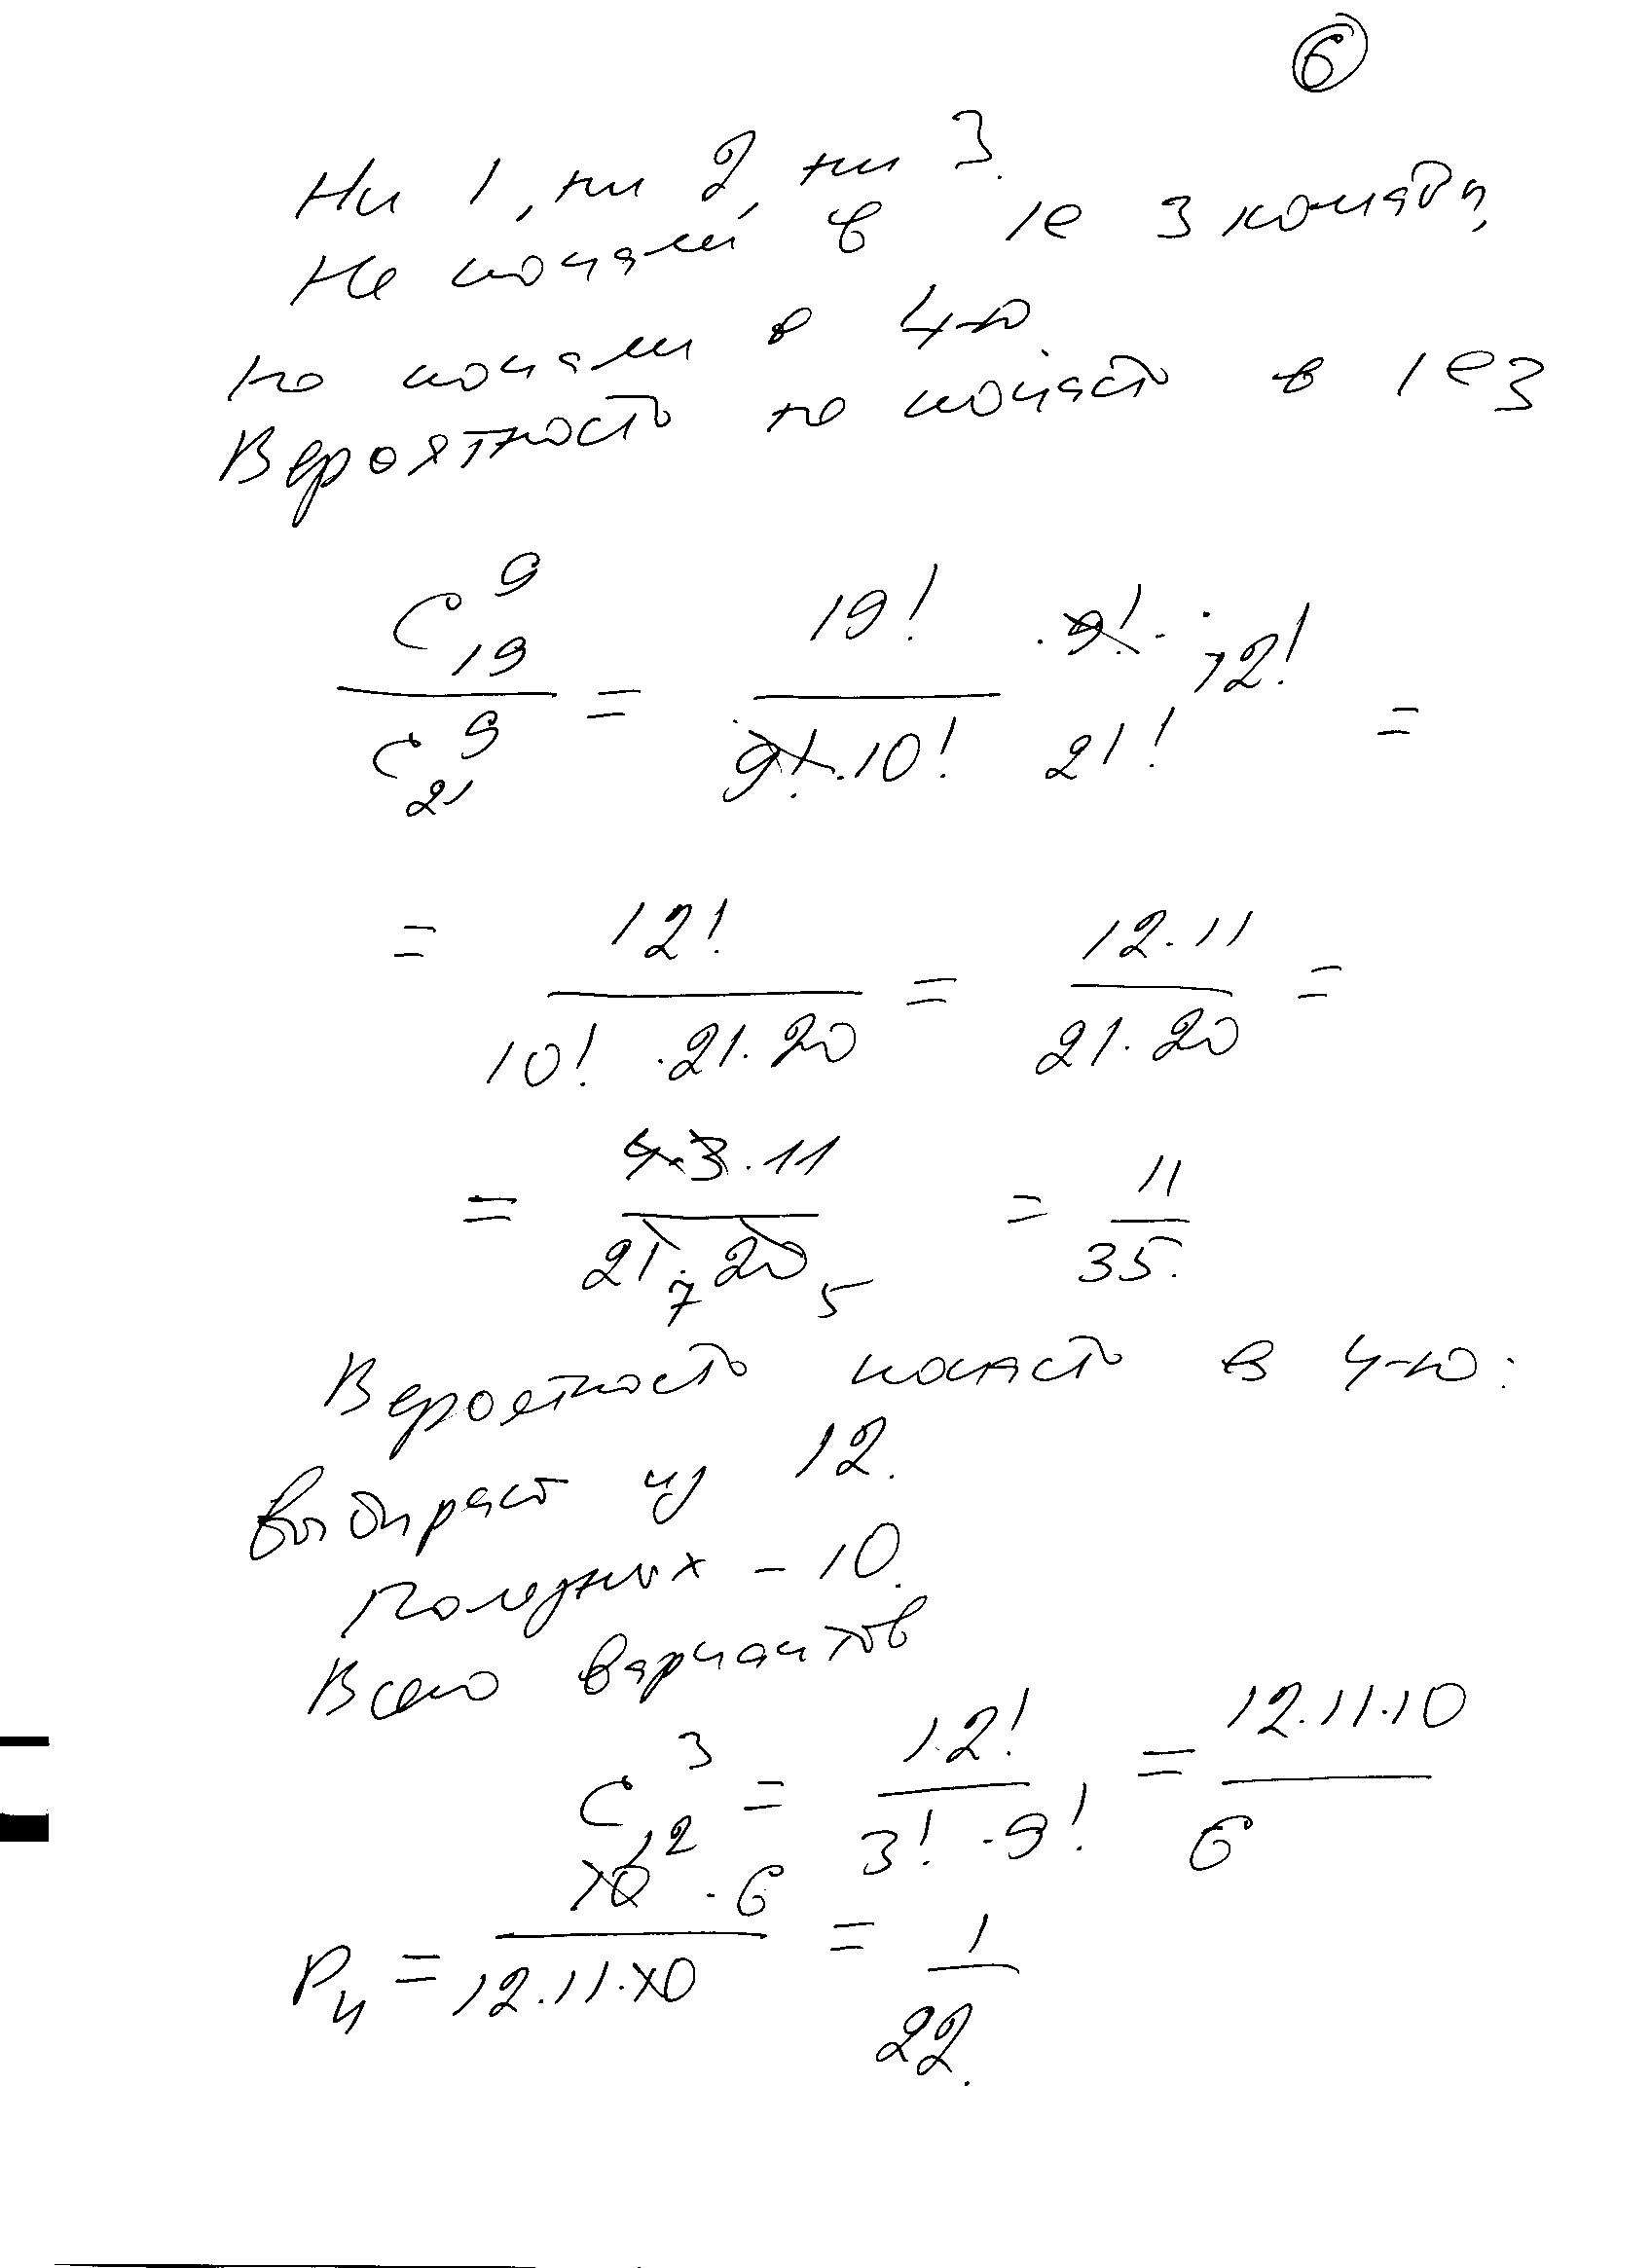 6
Ни 1, ни 2, ни 3.
Не попали в 1е 3 команды,
но попали в 4-ю
Вероятность не попасть в 1е 3
C₁₉⁹ / C₂₁⁹ = 19! / (9! · 10!) · 9! · 12! / 21! =
= 12! / (10! · 21 · 20) = 12 · 11 / (21 · 20) =
= 4 · 3 · 11 / (21 · 20) = 11 / 35.
7 5
Вероятность попасть в 4-ю:
Выбираем из 12.
Полезных – 10.
Всего вариантов
C₁₂³ = 12! / (3! · 9!) = 12 · 11 · 10 / 6
P₄ = 10 · 6 / (12 · 11 · 10) = 1 / 22.